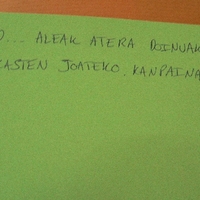 O... ALEAK ATERA DOINUAK
KASTEN JOATEKO, KANPAINA